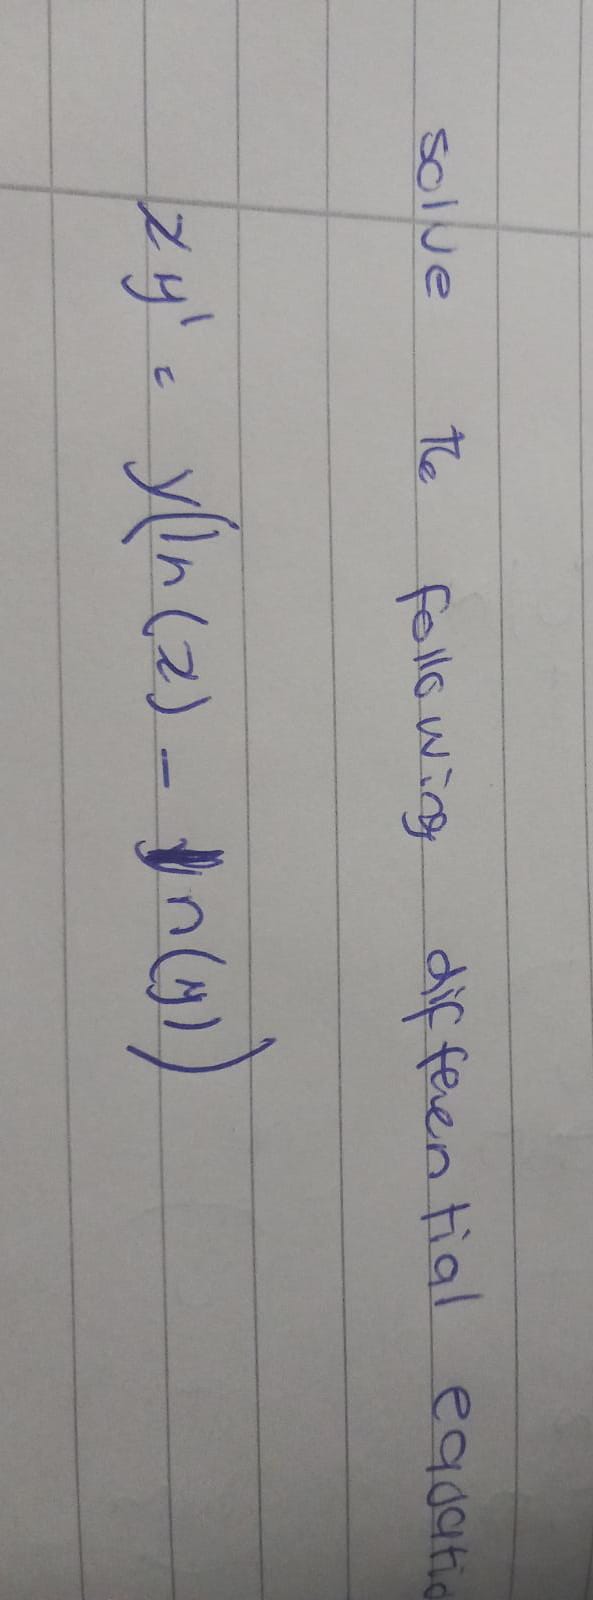 solve the following differential equatio
xy' = y(ln(x) - ln(y))